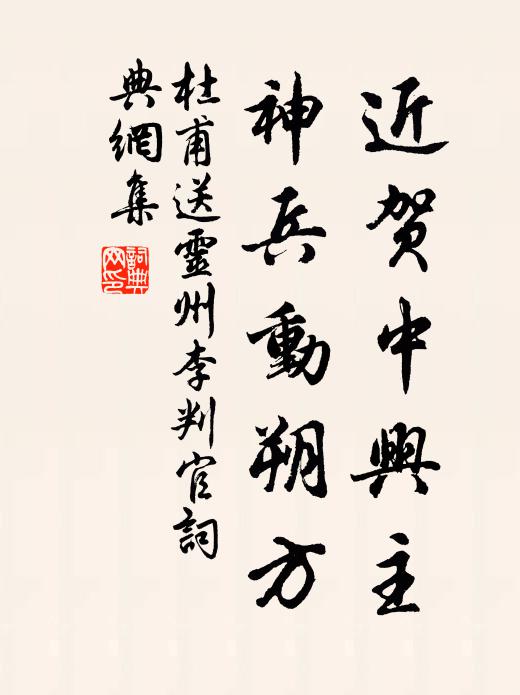 近賀中興主
神兵動朔方
杜甫送靈州李判官詞
典網集
詞典
网印